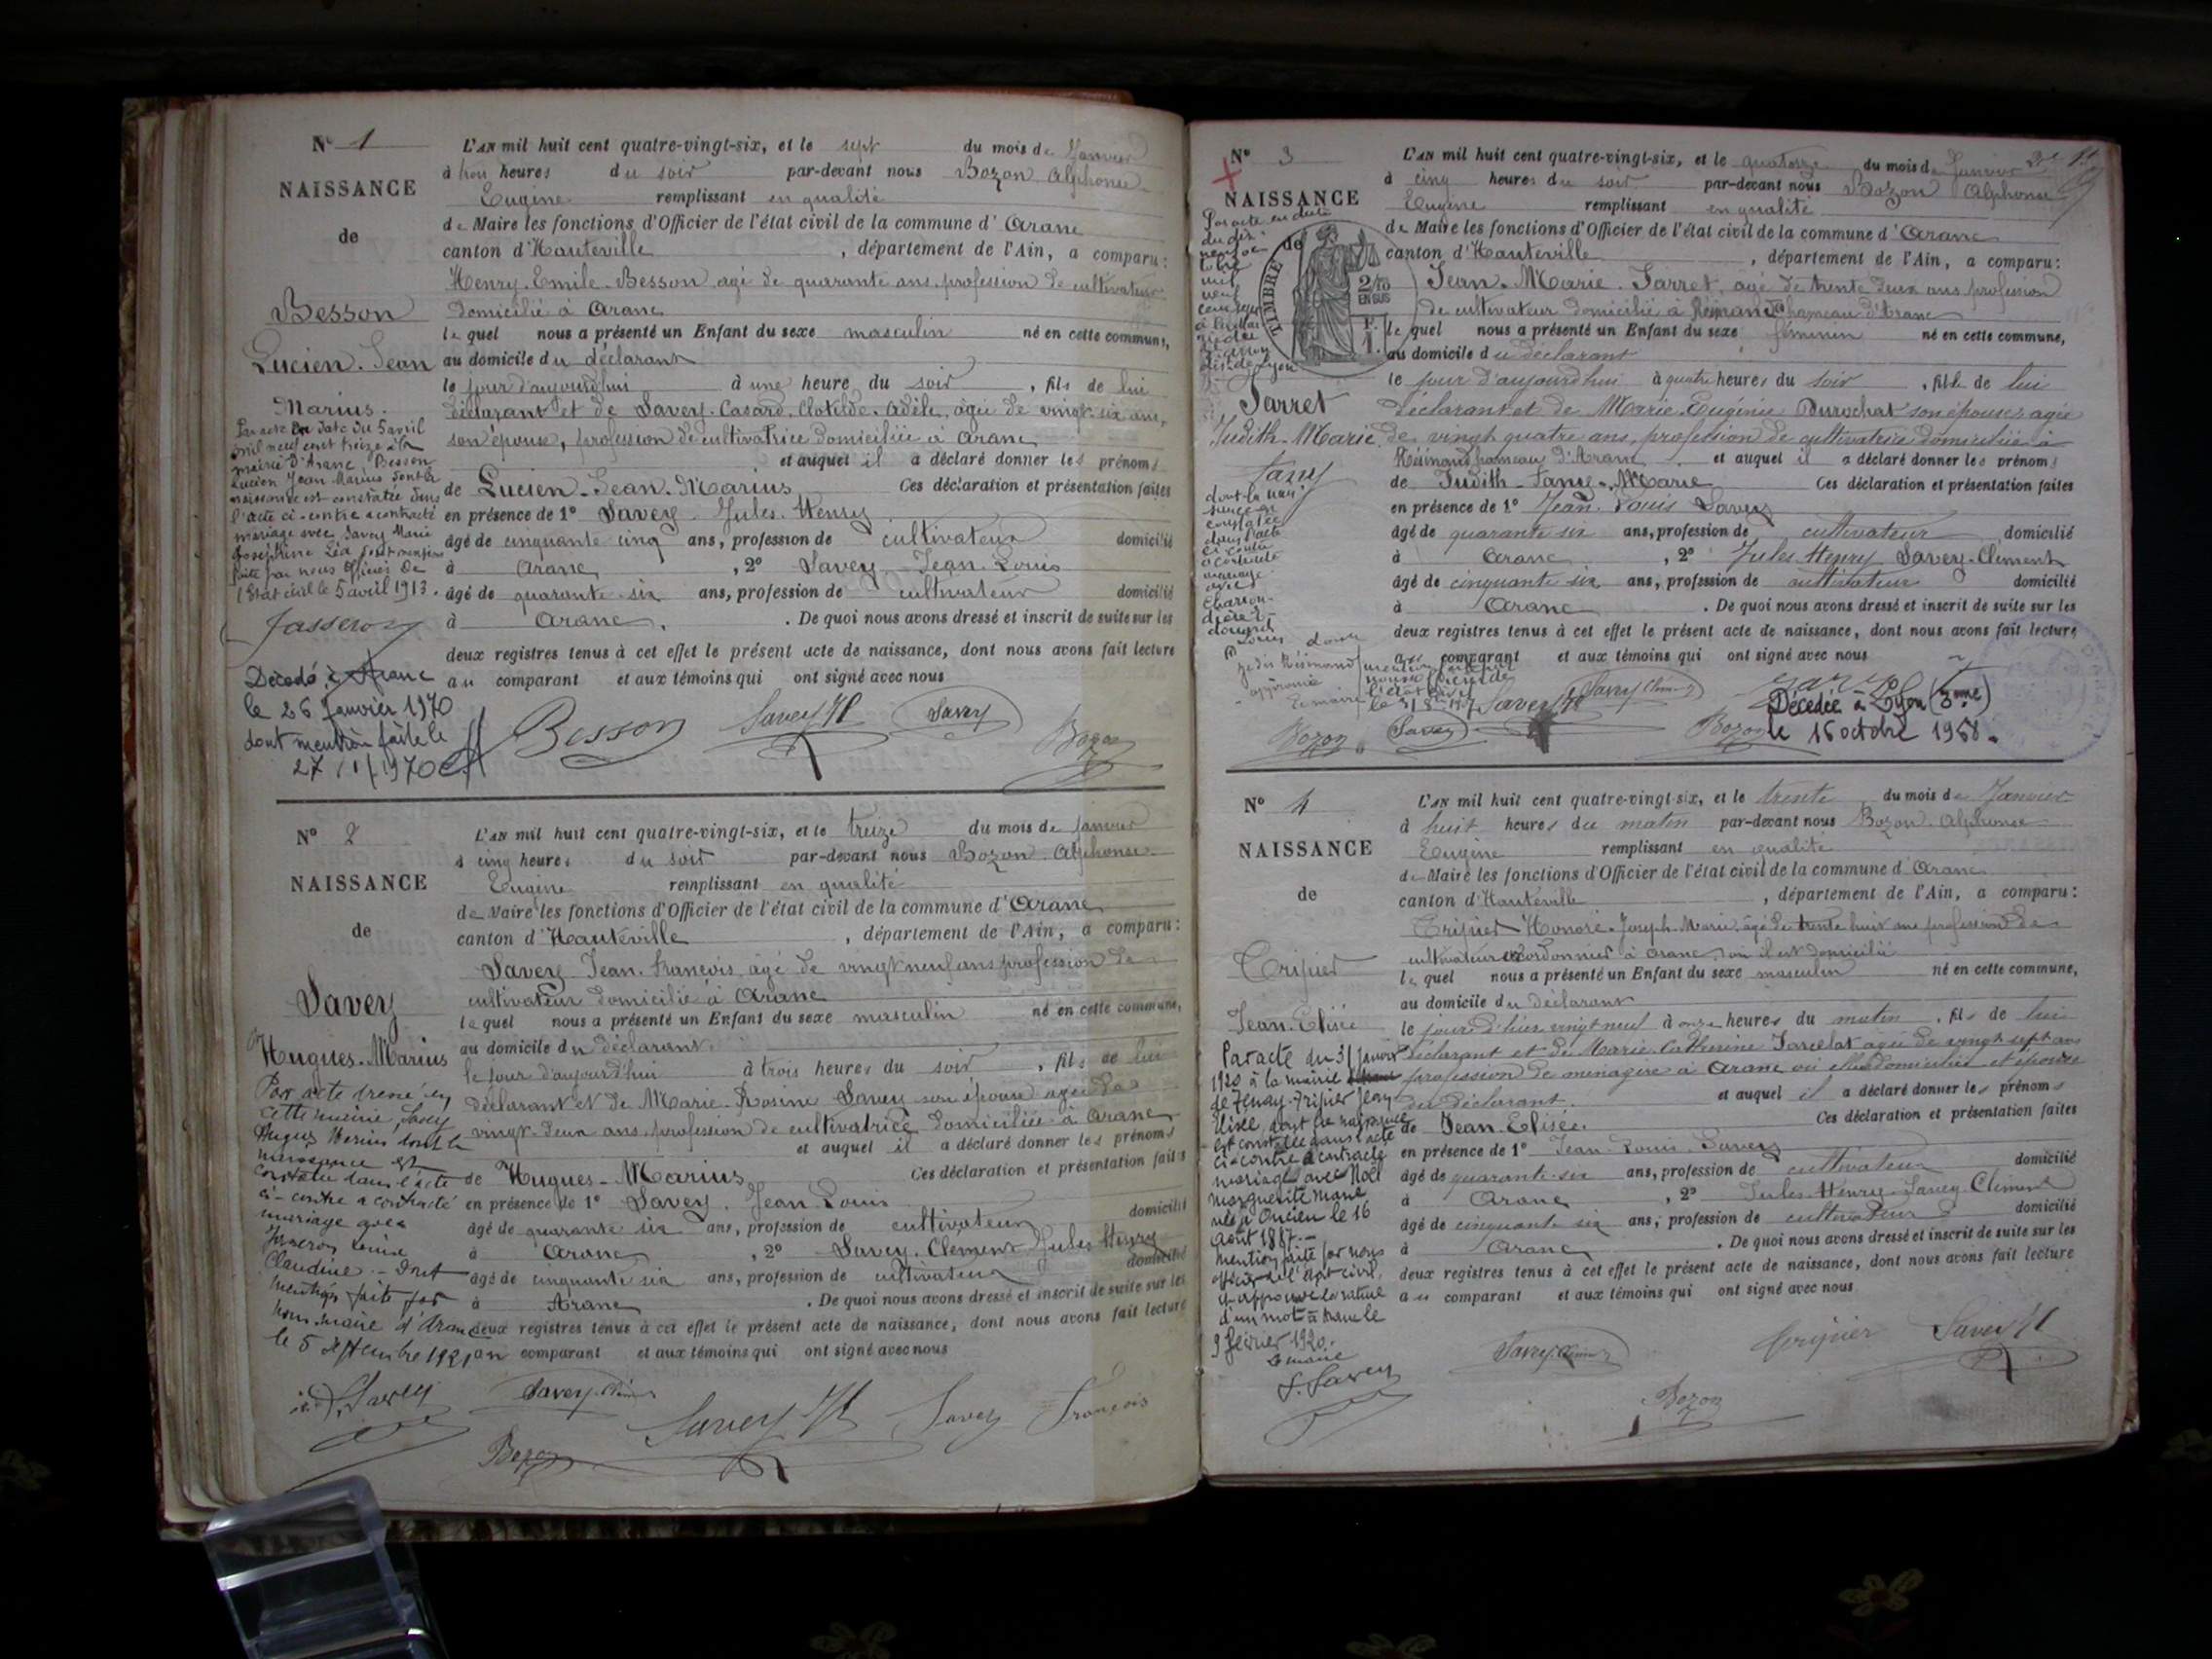 N° 1
NAISSANCE
de
Besson
Lucien. Jean
Marius.
Par acte en date du 5 avril
mil neuf cent treize à la
mairie d'Aranc, Besson
Lucien Jean Marius dont la
naissance est constatée dans
l'acte ci-contre a contracté
mariage avec Savey Marie
Joséphine Léa dont mention
faite par nous officier de
l'Etat civil le 5 avril 1913.
Jasseron
Décédé à Aranc
le 26 janvier 1970
dont mention faite le
27/1/1970
L'AN mil huit cent quatre-vingt-six, et le sept du mois de Janvier
à trois heures du soir par-devant nous Bozon Alphonse
Eugène remplissant en qualité
de Maire les fonctions d'Officier de l'état civil de la commune d'Aranc
canton d'Hauteville, département de l'Ain, a comparu:
Henry. Emile. Besson agé de quarante ans, profession de cultivateur
domicilié à Aranc
lequel nous a présenté un Enfant du sexe masculin né en cette commune,
au domicile du déclarant
le jour d'aujourd'hui à une heure du soir, fils de lui
déclarant et de Savey. Casard. Clotilde. Adèle, agée de vingt-six ans,
son épouse, profession de cultivatrice domiciliée à Aranc
et auquel il a déclaré donner les prénoms
de Lucien. Jean. Marius Ces déclaration et présentation faites
en présence de 1° Savey. Jules. Henry
âgé de cinquante cinq ans, profession de cultivateur domicilié
à Aranc, 2° Savey Jean. Louis
âgé de quarante-six ans, profession de cultivateur domicilié
à Aranc. De quoi nous avons dressé et inscrit de suite sur les
deux registres tenus à cet effet le présent acte de naissance, dont nous avons fait lecture
au comparant et aux témoins qui ont signé avec nous
Besson Savey JH Savey Bozon
N° 2
NAISSANCE
de
Savey
Hugues. Marius
Par acte dressé en
cette mairie, Savey
Hugues Marius dont la
naissance est
constatée dans l'acte
ci-contre a contracté
mariage avec
Jasseron Louise
Claudine. - Dont
mention faite par
nous maire d'Aranc
le 5 septembre 1921
L'AN mil huit cent quatre-vingt-six, et le treize du mois de janvier
à cinq heures du soir par-devant nous Bozon. Alphonse.
Eugène remplissant en qualité
de Maire les fonctions d'Officier de l'état civil de la commune d'Aranc
canton d'Hauteville, département de l'Ain, a comparu:
Savey Jean. François, agé de vingt neuf ans profession de
cultivateur domicilié à Aranc
lequel nous a présenté un Enfant du sexe masculin né en cette commune,
au domicile du déclarant.
le jour d'aujourd'hui à trois heures du soir, fils de lui
déclarant et de Marie. Rosine Savey son épouse agée de
vingt-deux ans, profession de cultivatrice domiciliée à Aranc
et auquel il a déclaré donner les prénoms
de Hugues-Marius Ces déclaration et présentation faites
en présence de 1° Savey. Jean Louis
âgé de quarante six ans, profession de cultivateur domicilié
à Aranc, 2° Savey. Clément Jules Henry
âgé de cinquante six ans, profession de cultivateur domicilié
à Aranc. De quoi nous avons dressé et inscrit de suite sur les
deux registres tenus à cet effet le présent acte de naissance, dont nous avons fait lecture
au comparant et aux témoins qui ont signé avec nous
Savey Savey. Clément Savey JH Savey François
Bozon
N° 3
NAISSANCE
de
TIMBRE
2/10
EN SUS
Jarret
Judith-Marie
Fany
dont la nais
sance est
constatée
dans l'acte
ci contre
a contracté
mariage
avec
L'AN mil huit cent quatre-vingt-six, et le quatorze du mois de Janvier
à cinq heures du soir par-devant nous Bozon Alphonse
Eugène remplissant en qualité
de Maire les fonctions d'Officier de l'état civil de la commune d'Aranc
canton d'Hauteville, département de l'Ain, a comparu:
Jean. Marie. Jarret, agé de trente deux ans profession
de cultivateur domicilié à Résinand hameau d'Aranc
lequel nous a présenté un Enfant du sexe féminin né en cette commune,
au domicile du déclarant
le jour d'aujourd'hui à quatre heures du soir, fille de lui
déclarant et de Marie. Eugénie Durochat son épouse, agée
de vingt quatre ans, profession de cultivatrice domiciliée à
Résinand hameau d'Aranc et auquel il a déclaré donner les prénoms
de Judith-Fany-Marie Ces déclaration et présentation faites
en présence de 1° Jean. Louis Savey
âgé de quarante six ans, profession de cultivateur domicilié
à Aranc, 2° Jules Henry Savey-Clément
âgé de cinquante six ans, profession de cultivateur domicilié
à Aranc. De quoi nous avons dressé et inscrit de suite sur les
deux registres tenus à cet effet le présent acte de naissance, dont nous avons fait lecture
au comparant et aux témoins qui ont signé avec nous
Savey JH Savey Clément
Décédée à Lyon (3ème)
le 16 octobre 1968.
Bozon Savey Bozon
N° 4
NAISSANCE
de
Tripier
Jean. Elisée
Par acte du 31 janvier
1920 à la mairie
de Tenay. Tripier Jean
Elisée, dont la naissance
est constatée dans l'acte
ci-contre a contracté
mariage avec Noël
Marguerite Marie
née à Oncieu le 16
août 1887. -
Mention faite par nous
officier de l'état civil,
qui approuve la rature
d'un mot à Aranc le
9 février 1920.
Le maire
J. Savey
L'AN mil huit cent quatre-vingt-six, et le trente du mois de Janvier
à huit heures du matin par-devant nous Bozon. Alphonse
Eugène remplissant en qualité
de Maire les fonctions d'Officier de l'état civil de la commune d'Aranc
canton d'Hauteville, département de l'Ain, a comparu:
Tripier Honoré. Joseph. Marie, agé de trente huit ans profession de
cultivateur cordonnier à Aranc, où il est domicilié
lequel nous a présenté un Enfant du sexe masculin né en cette commune,
au domicile du déclarant
le jour d'hier vingt neuf à onze heures du matin, fils de lui
déclarant et de Marie. Catherine Jarcelat agée de vingt sept ans
profession de ménagère à Aranc où elle domiciliée et épouse
du déclarant. et auquel il a déclaré donner les prénoms
de Jean-Elisée. Ces déclaration et présentation faites
en présence de 1° Jean. Louis. Savey
âgé de quarante-six ans, profession de cultivateur domicilié
à Aranc, 2° Jules. Henry. Savey. Clément
âgé de cinquante six ans, profession de cultivateur domicilié
à Aranc. De quoi nous avons dressé et inscrit de suite sur les
deux registres tenus à cet effet le présent acte de naissance, dont nous avons fait lecture
au comparant et aux témoins qui ont signé avec nous
Savey. Clément Tripier Savey JH
Bozon